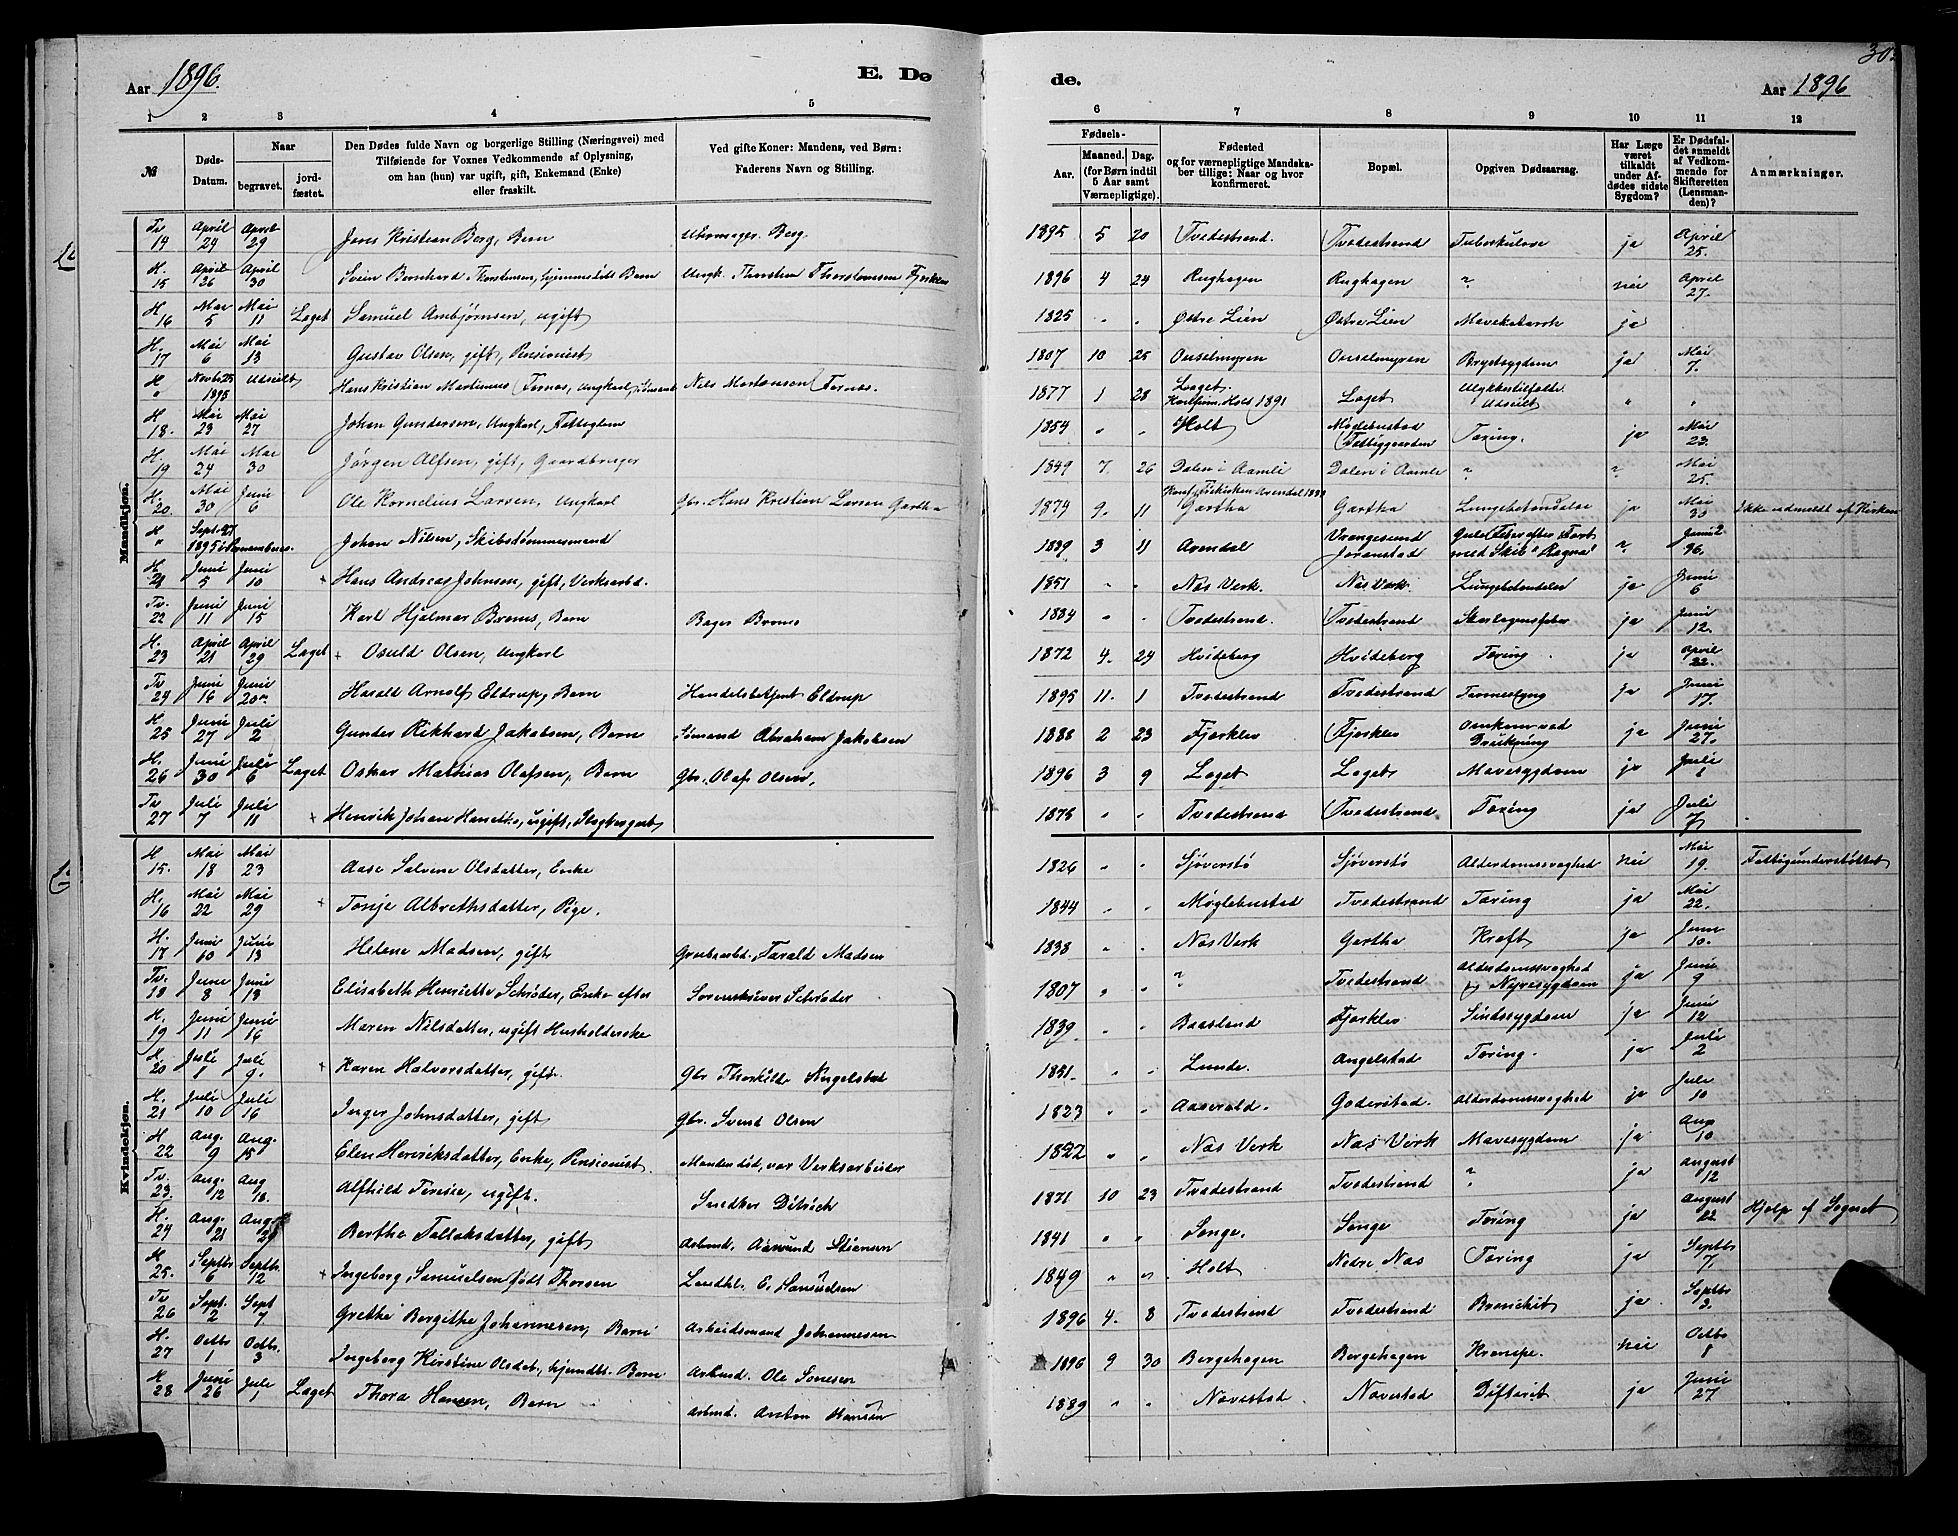 Aar 1896.
E. Dø
de.
Aar 1896
1 2 3 4 5 6 7 8 9 10 11 12
№
Døds-Datum.
Naar
begravet.
jord-fæstet.
Den Dødes fulde Navn og borgerlige Stilling (Næringsvei) med
Tilføiende for Voxnes Vedkommende af Oplysning,
om han (hun) var ugift, gift, Enkemand (Enke)
eller fraskilt.
Ved gifte Koner: Mandens, ved Børn:
Faderens Navn og Stilling.
Fødsels-
Aar.
Maaned. Dag.
(for Børn indtil
5 Aar samt
Værnepligtige).
Fødested
og for værnepligtige Mandska-
ber tillige: Naar og hvor
konfirmeret.
Bopæl.
Opgiven Dødsaarsag.
Har Læge
været
tilkaldt
under Af-
dødes sidste
Sygdom?
Er Dødsfal-
det anmeldt
af Vedkom-
mende for
Skifteretten
(Lensman-
den)?
Anmærkninger.
Mandkjøn.
Tv 14 April 24 April 29 Jens Kristian Berg, Barn Uhrmager Berg 1895 5 20 Tvedestrand. Tvedestrand Tuberkulose ja April 25.
H. 15 April 26 April 30 Svein Bernhard Thorstensen, hjemmedøbt Barn Ungk. Thorsten Thorstensen Fjerklev 1896 4 24 Rughagen Rughagen " nei April 27.
H. 16 Mai 5 Mai 11 Laget Samuel Ambjørnsen, ugift 1825 " " Østre Lien Østre Lien Mavekatarrh ja
H. 17 Mai 6 Mai 13 Gustav Olsen, gift, Pensionist 1807 10 25 Ouselmyren Ouselmyren Brystsygdom ja Mai 7.
H " Novbr 25 1895 Udseilt Hans Kristian Martinius Tornes, Ungkarl, Sømand Nils Mortensen Tornes. 1877 1 28 Laget. Konfirm. Holt 1891 Laget Ulykkestilfælde Udseilt " "
H. 18. Mai 23 Mai 27 Johan Gundersen, Ungkarl, Fattiglem 1854 " " Holt Møglebustad Fattiggaarden Tæring. ja Mai 23.
H. 19 Mai 24 Mai 30 Jørgen Alfsen, gift, Gaardbruger 1849 7. 26 Dalen i Aamli Dalen i Aamli " " Mai 25.
H. 20. Mai 30 Juni 6 Ole Kornelius Larsen, Ungkarl Gbr. Hans Kristian Larsen Gartha 1874 9. 11 Gartha Gartha Lungebetændelse ja Mai 30 Ikke udmeldt af Kirken
H " Septbr 27 1895 Johan Nilsen, Skibstømmermand 1839 3 11 Arendal Vrangesund Joranstad Gule Feber efter Fart med Skib "Ragna" " Juni 2 96.
H 21 Juni 5 Juni 10 + Hans Andreas Johnsen, gift, Verksarbd. 1851 " " Næs Verk. Næs Verk. Lungebetændelse ja Juni 6
Tv. 22 Juni 11 Juni 15 Karl Hjalmar Broms, Barn Bager Broms 1884 " " Tvedestrand. Tvedestrand Skarlagensfeber ja Juni 12.
H. 23 April 21 April 29 Laget + Osuld Olsen, Ungkarl 1872 4. 24 Hvideberg Hvideberg Tæring. ja April 22.
Tv 24 Juni 16 Juni 20 Harald Arnolf Eldrup, Barn Handelsbetjent Eldrup 1895 11. 1 Tvedestrand Tvedestrand Tarmslyng ja Juni 17.
H. 25 Juni 27 Juli 2 Gunder Rikhard Jakobsen, Barn Sømand Abraham Jakobsen 1888 2 23 Fjerklev Fjerklev Omkom ved Drukning ja Juni 27.
H. 26 Juni 30 Juli 6 Laget Oskar Mathias Olafsen, Barn Gbr. Olaf Olsen, 1896 3 9 Laget Laget Mavesygdom ja Juli 1
Tv 27 Juli 7 Juli 11 + Henrik Johan, ugift, 1875 " " Tvedestrand Tvedestrand Tæring ja Juli 7
Kvindekjøn.
H 15. Mai 18 Mai 23 Aase Salvine Olsdatter, Enke 1826 " " Sjøverstø Sjøverstø Alderdomssvaghed nei Mai 19. Fattigunderstøttet
H. 16 Mai 22 Mai 29 + Tonje Albrethsdatter, Pige. 1844 " " Møglebustad Tvedestrand Tæring ja Mai 22.
H. 17 Juni 10 Juni 13 Helene Madsen, gift Grubearbd. Tarald Madsen 1838 " " Næs Verk Gartha Kræft ja Juni 10.
Tv. 18 Juni 8 Juni 13 Elisabeth Henriette Schrøder, Enke efter Sorenskriver Schrøder 1807 " " " Tvedestrand Alderdomssvaghed og Nyresygdom ja Juni 9
H. 19 Juni 11 Juni 16 Maren Nilsdatter, ugift Husholderske 1839 " " Baasland Fjerklev Sindssygdom ja Juni 12
H. 20 Juli 1 Juli 9. + Karen Halvorsdatter, gift. Gbr Thorkild Angelstad 1851. " " Lunde. Angelstad Tæring. ja Juli 2
H. 21 Juli 10 Juli 16 Inger Johnsdatter, gift Gbr. Svend Olsen 1823 " " Aaserald. Goderstad. Alderdomssvaghed ja Juli 10
H 22 Aug. 9 Aug. 15 Elen Henriksdatter, Enke, Pensionist. Manden død, var Verksarbeider 1822 " " Næs Verk Næs Verk Mavesygdom ja Aug 10
Tv. 23. Aug. 12 Aug 18. Alfhild Teresie, ugift. Snedker Ditrich 1871 10 23 Tvedestrand Tvedestrand " ja August 12
H. 24 Aug. 21 Aug 29 Berthe Tallaksdatter, gift Arbmd. Aamund Stiansen 1841 " " Songe. Songe Tæring ja August 22. Hjælp af Sognet
H 25. Septbr 6 Septbr. 12 + Ingeborg Samuelsen født Thorsen Landhl. E. Samuelsen 1849 " " Holt Nedre Næs Tæring ja Septbr 7.
Tv 26 Sept. 2 Sept 7 Grethe Bergithe Johannesen, Barn Arbeidsmand Johannesen 1896 4. 8 Tvedestrand Tvedestrand Bronchit ja. Septbr 3.
H. 27 Octbr 1 Octbr. 3 Ingeborg Kirstine Olsdat., hjemdt. Barn Arbmd. Ole Sonesen 1896 9 30 Bergehagen Bergehagen Krampe. nei Octbr 1
H 28 Juni 26 Juli 1 Laget Thora Hansen, Barn Arbmd. Anton Hansen 1889 " " Navestad Navestad Difterit ja Juni 27